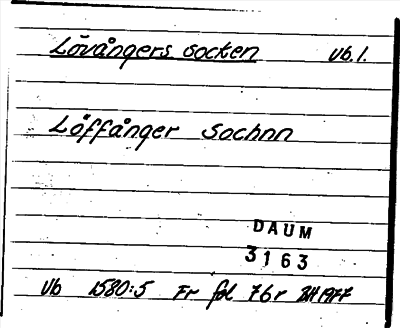 Lövångers socken Vb.l.
Löffånger Sochnn
DAUM
3163
Vb 1580:5 Fr fol 76r 1977